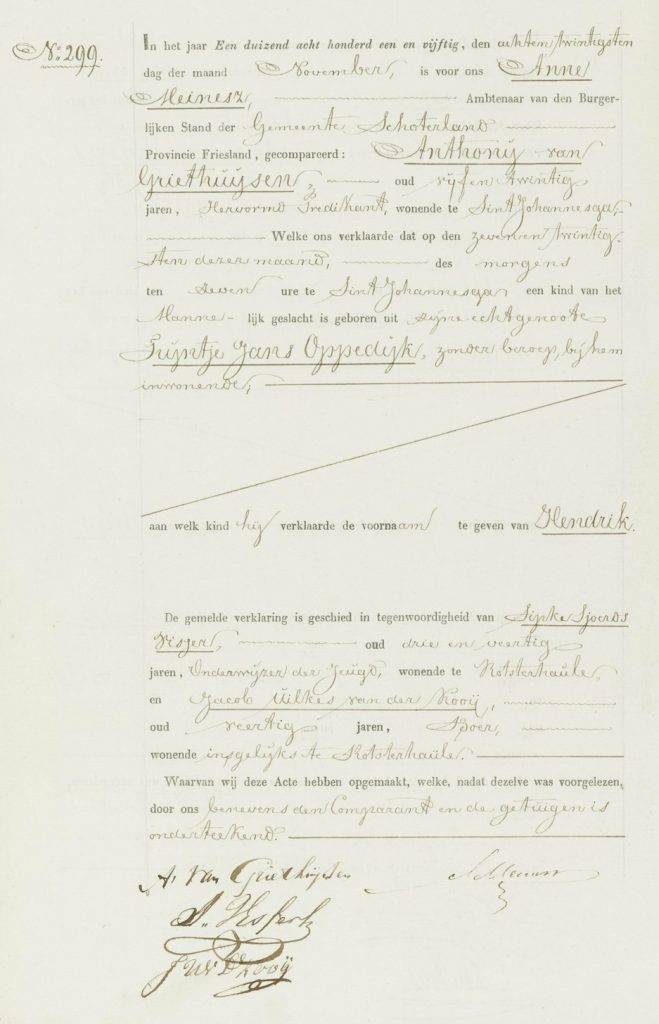 No. 299.
In het jaar Een duizend acht honderd een en vijftig, den achten twintigsten
dag der maand November, is voor ons Anne
Meinesz, Ambtenaar van den Burger-
lijken Stand der Gemeente Schoterland
Provincie Friesland, gecompareerd: Anthonij van
Griethuijsen, oud vijf en twintig
jaren, Hervormd Predikant, wonende te Sint Johannesga,
Welke ons verklaarde dat op den zeven en twintig-
sten dezer maand, des morgens
ten zeven ure te Sint Johannesga een kind van het
Manne- lijk geslacht is geboren uit zijne echtgenoote
Trijntje Jans Oppedijk, zonder beroep, bij hem
inwonende,
aan welk kind hij verklaarde de voornaam te geven van Hendrik.
De gemelde verklaring is geschied in tegenwoordigheid van Sipke Sjoerds
Visser, oud drie en veertig
jaren, Onderwijzer der Jeugd, wonende te Rotsterhaule,
en Jacob Uilkes van der Kooij,
oud veertig jaren, Boer,
wonende insgelijks te Rotsterhaule.
Waarvan wij deze Acte hebben opgemaakt, welke, nadat dezelve was voorgelezen,
door ons benevens den Comparant en de getuigen is
onderteekend.
A. van Griethuijsen